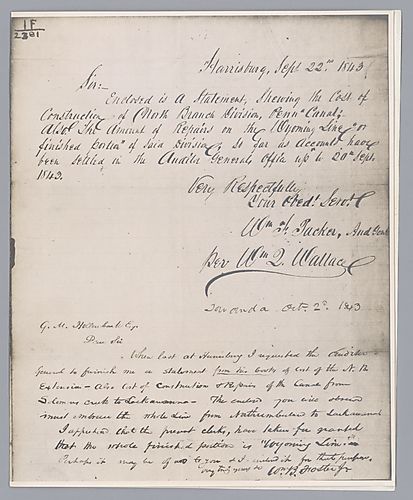 1F
2381
Harrisburg, Sept 22nd 1843
Sir:-
Enclosed is a Statement, Shewing the Cost of
Construction of North Branch Division, Penna Canal;
Also The Amount of Repairs on the Wyoming Line "or
finished portion" of said Division; so far as Accounts have
been settled in the Auditor Generals Office up to 20th Sept.
1843.
Very Respectfully
Your Obedt Servt
Wm F. Packer, Aud Genl
Per Wm Q. Wallace
Towanda Oct. 2d 1843
G. M. Hollenback Esq
Dear Sir
When last at Harrisburg I requested the Auditor
General to furnish me a statement from his books of cost of the N. B.
Extension - Also cost of Construction & Repairs of the Canal from
Solomons creek to Lackawanna - The enclosed you will observe
must embrace the whole Line from Northumberland to Lackawanna
I apprehend that the present clerks, have taken for granted
that the whole finished portion is "Wyoming Line" -
Perhaps it may be of use to you & I enclose it for that purpose,
very truly yours &c Wm B. Foster Jr